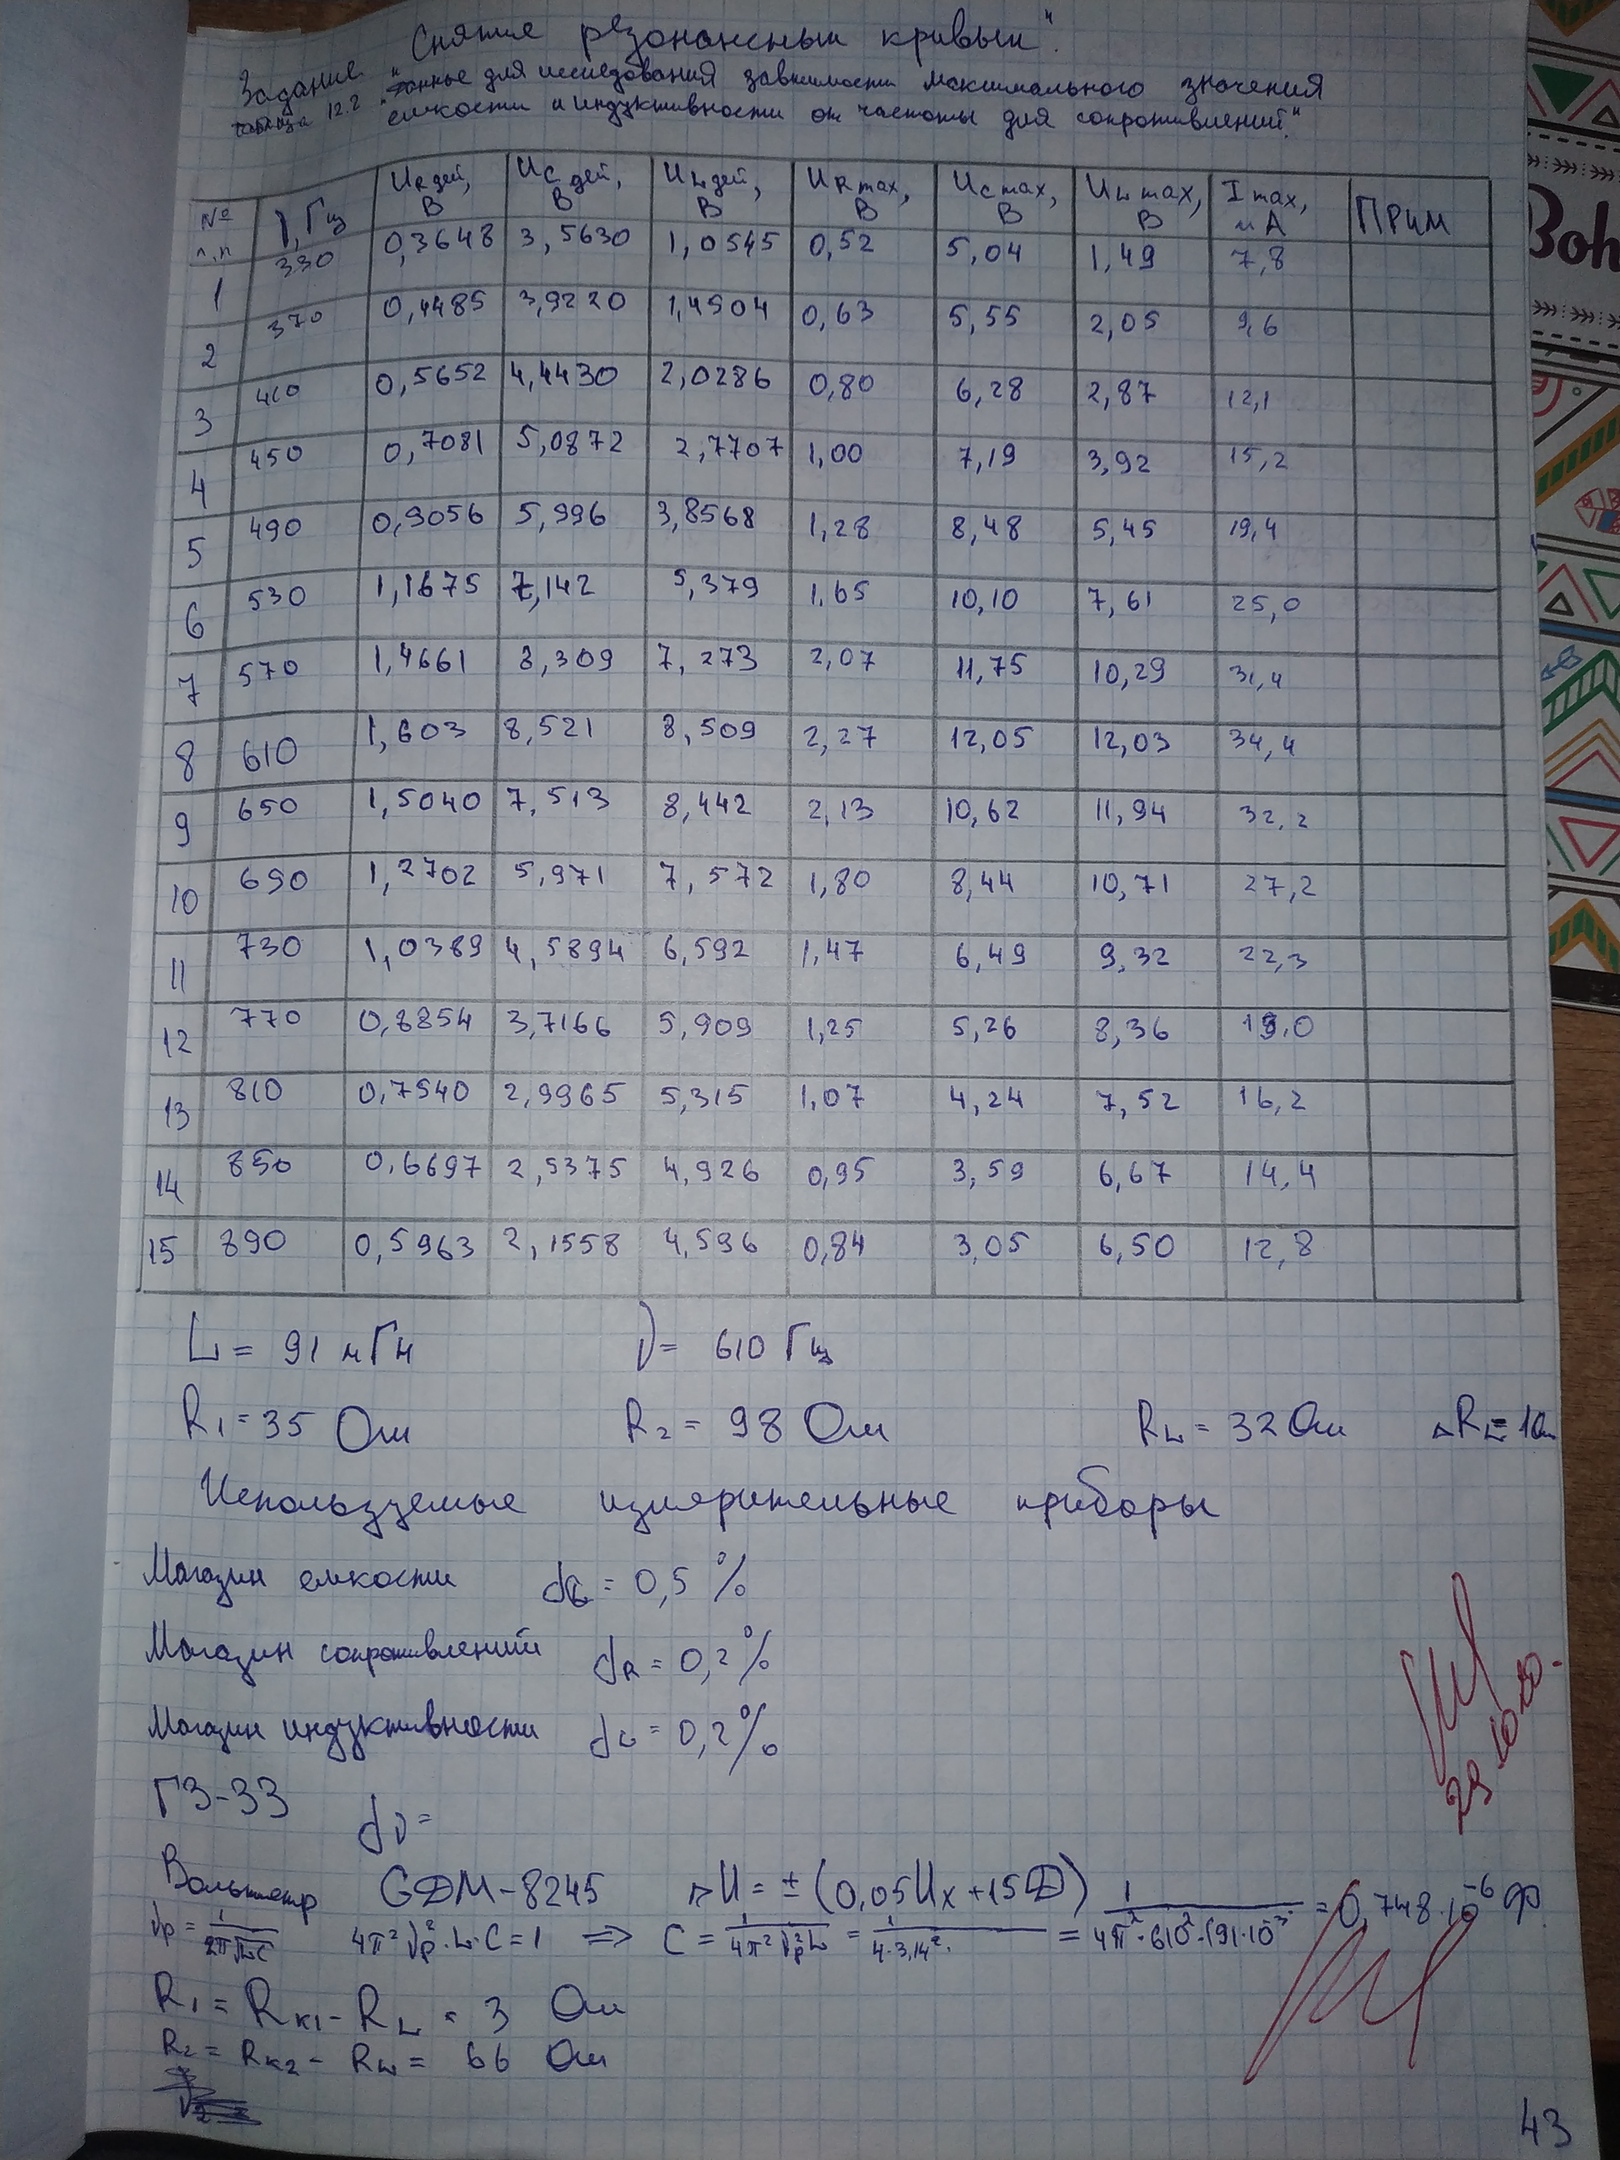 Снятие резонансных кривых".
Задание "Данные для исследования зависимости максимального значения
таблица 12.2 емкости и индуктивности от частоты для сопротивлений."
№ п.п ν, Гц UR дей, В UC дей, В UL дей, В UR max, В UC max, В UL max, В I max, мА Прим
1 330 0,3648 3,5630 1,0545 0,52 5,04 1,49 7,8
2 370 0,4485 3,9220 1,4504 0,63 5,55 2,05 9,6
3 410 0,5652 4,4430 2,0286 0,80 6,28 2,87 12,1
4 450 0,7081 5,0872 2,7707 1,00 7,19 3,92 15,2
5 490 0,9056 5,996 3,8568 1,28 8,48 5,45 19,4
6 530 1,1675 7,142 5,379 1,65 10,10 7,61 25,0
7 570 1,4661 8,309 7,273 2,07 11,75 10,29 31,4
8 610 1,603 8,521 8,509 2,27 12,05 12,03 34,4
9 650 1,5040 7,513 8,442 2,13 10,62 11,94 32,2
10 690 1,2702 5,971 7,572 1,80 8,44 10,71 27,2
11 730 1,0389 4,5894 6,592 1,47 6,49 9,32 22,3
12 770 0,8854 3,7166 5,909 1,25 5,26 8,36 19,0
13 810 0,7540 2,9965 5,315 1,07 4,24 7,52 16,2
14 850 0,6697 2,5375 4,926 0,95 3,59 6,67 14,4
15 890 0,5963 2,1558 4,596 0,84 3,05 6,50 12,8
L = 91 мГн ν = 610 Гц
R1 = 35 Ом R2 = 98 Ом RL = 32 Ом ΔRL = 1 Ом
Используемые измерительные приборы
Магазин емкости δC = 0,5 %
Магазин сопротивлений δR = 0,2 %
Магазин индуктивности δL = 0,2 %
ГЗ-33 δν =
Вольтметр GDM-8245 ΔU = ± (0,05Ux + 15D)
νp = 1/(2π√LC) 4π²νp²·L·C = 1 => C = 1/(4π²νp²L) = 1/(4·3,14²· = 1/(4π²·610²·(91·10⁻³ = 0,748·10⁻⁶ Ф
R1 = Rк1 - RL = 3 Ом
R2 = Rк2 - RL = 66 Ом
29.10.20.
43
Boh